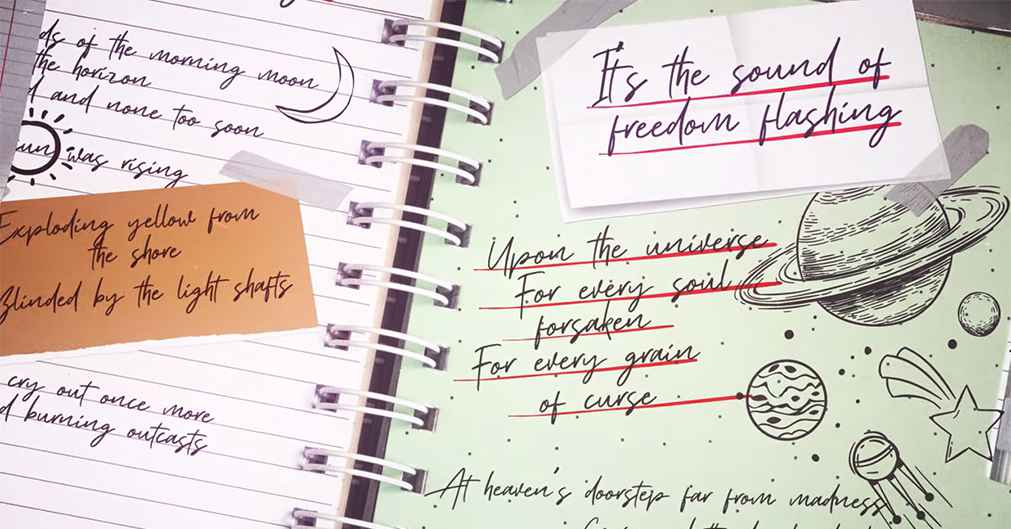 of the morning moon
the horizon
and none too soon
was rising
Exploding yellow from
the shore
Blinded by the light shafts
cry out once more
burning outcasts
It's the sound of
freedom flashing
Upon the universe
For every soul
forsaken
For every grain
of curse
At heaven's doorstep far from madness